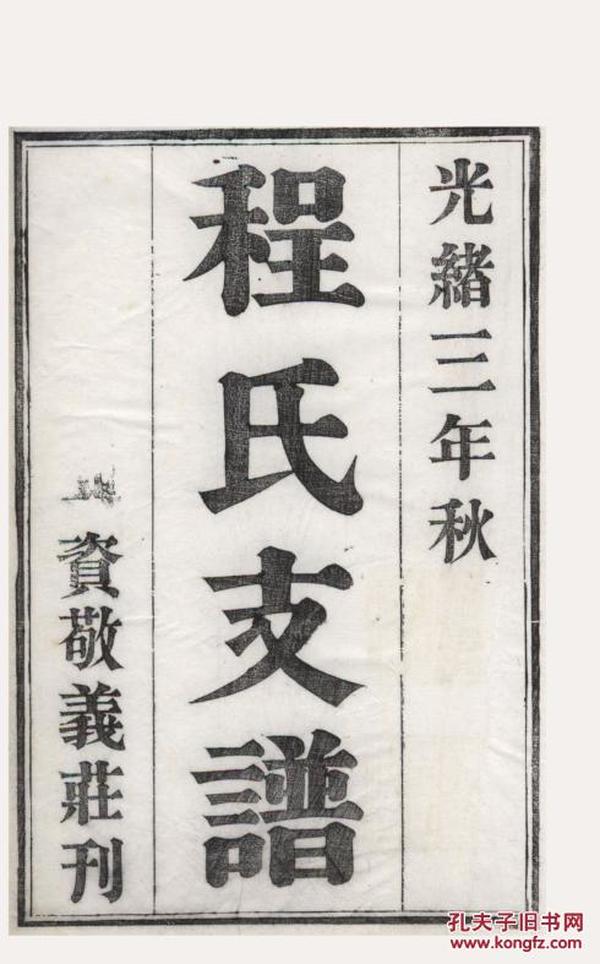 光緒三年秋
程氏支譜
資敬義莊刊
孔夫子旧书网
www.kongfz.com